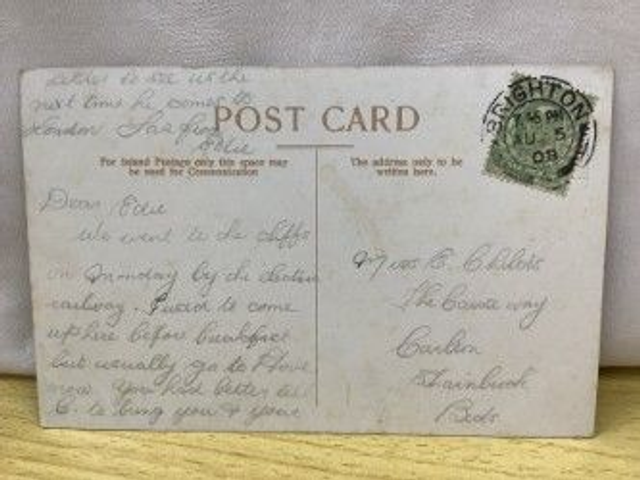 POST CARD
For Inland Postage only this space may
be used for Communication
The address only to be
written here.
BRIGHTON
7.45 PM
AU 5
08
Dear Edie
We went to the cliffs
on Monday by the electric
railway. I used to come
up here before breakfast
but usually go to Hove
now. You had better
to bring you & your
sister to see us the
next time he comes to
London
Edie
Miss E. Childs
The Causeway
Carlton
Beds